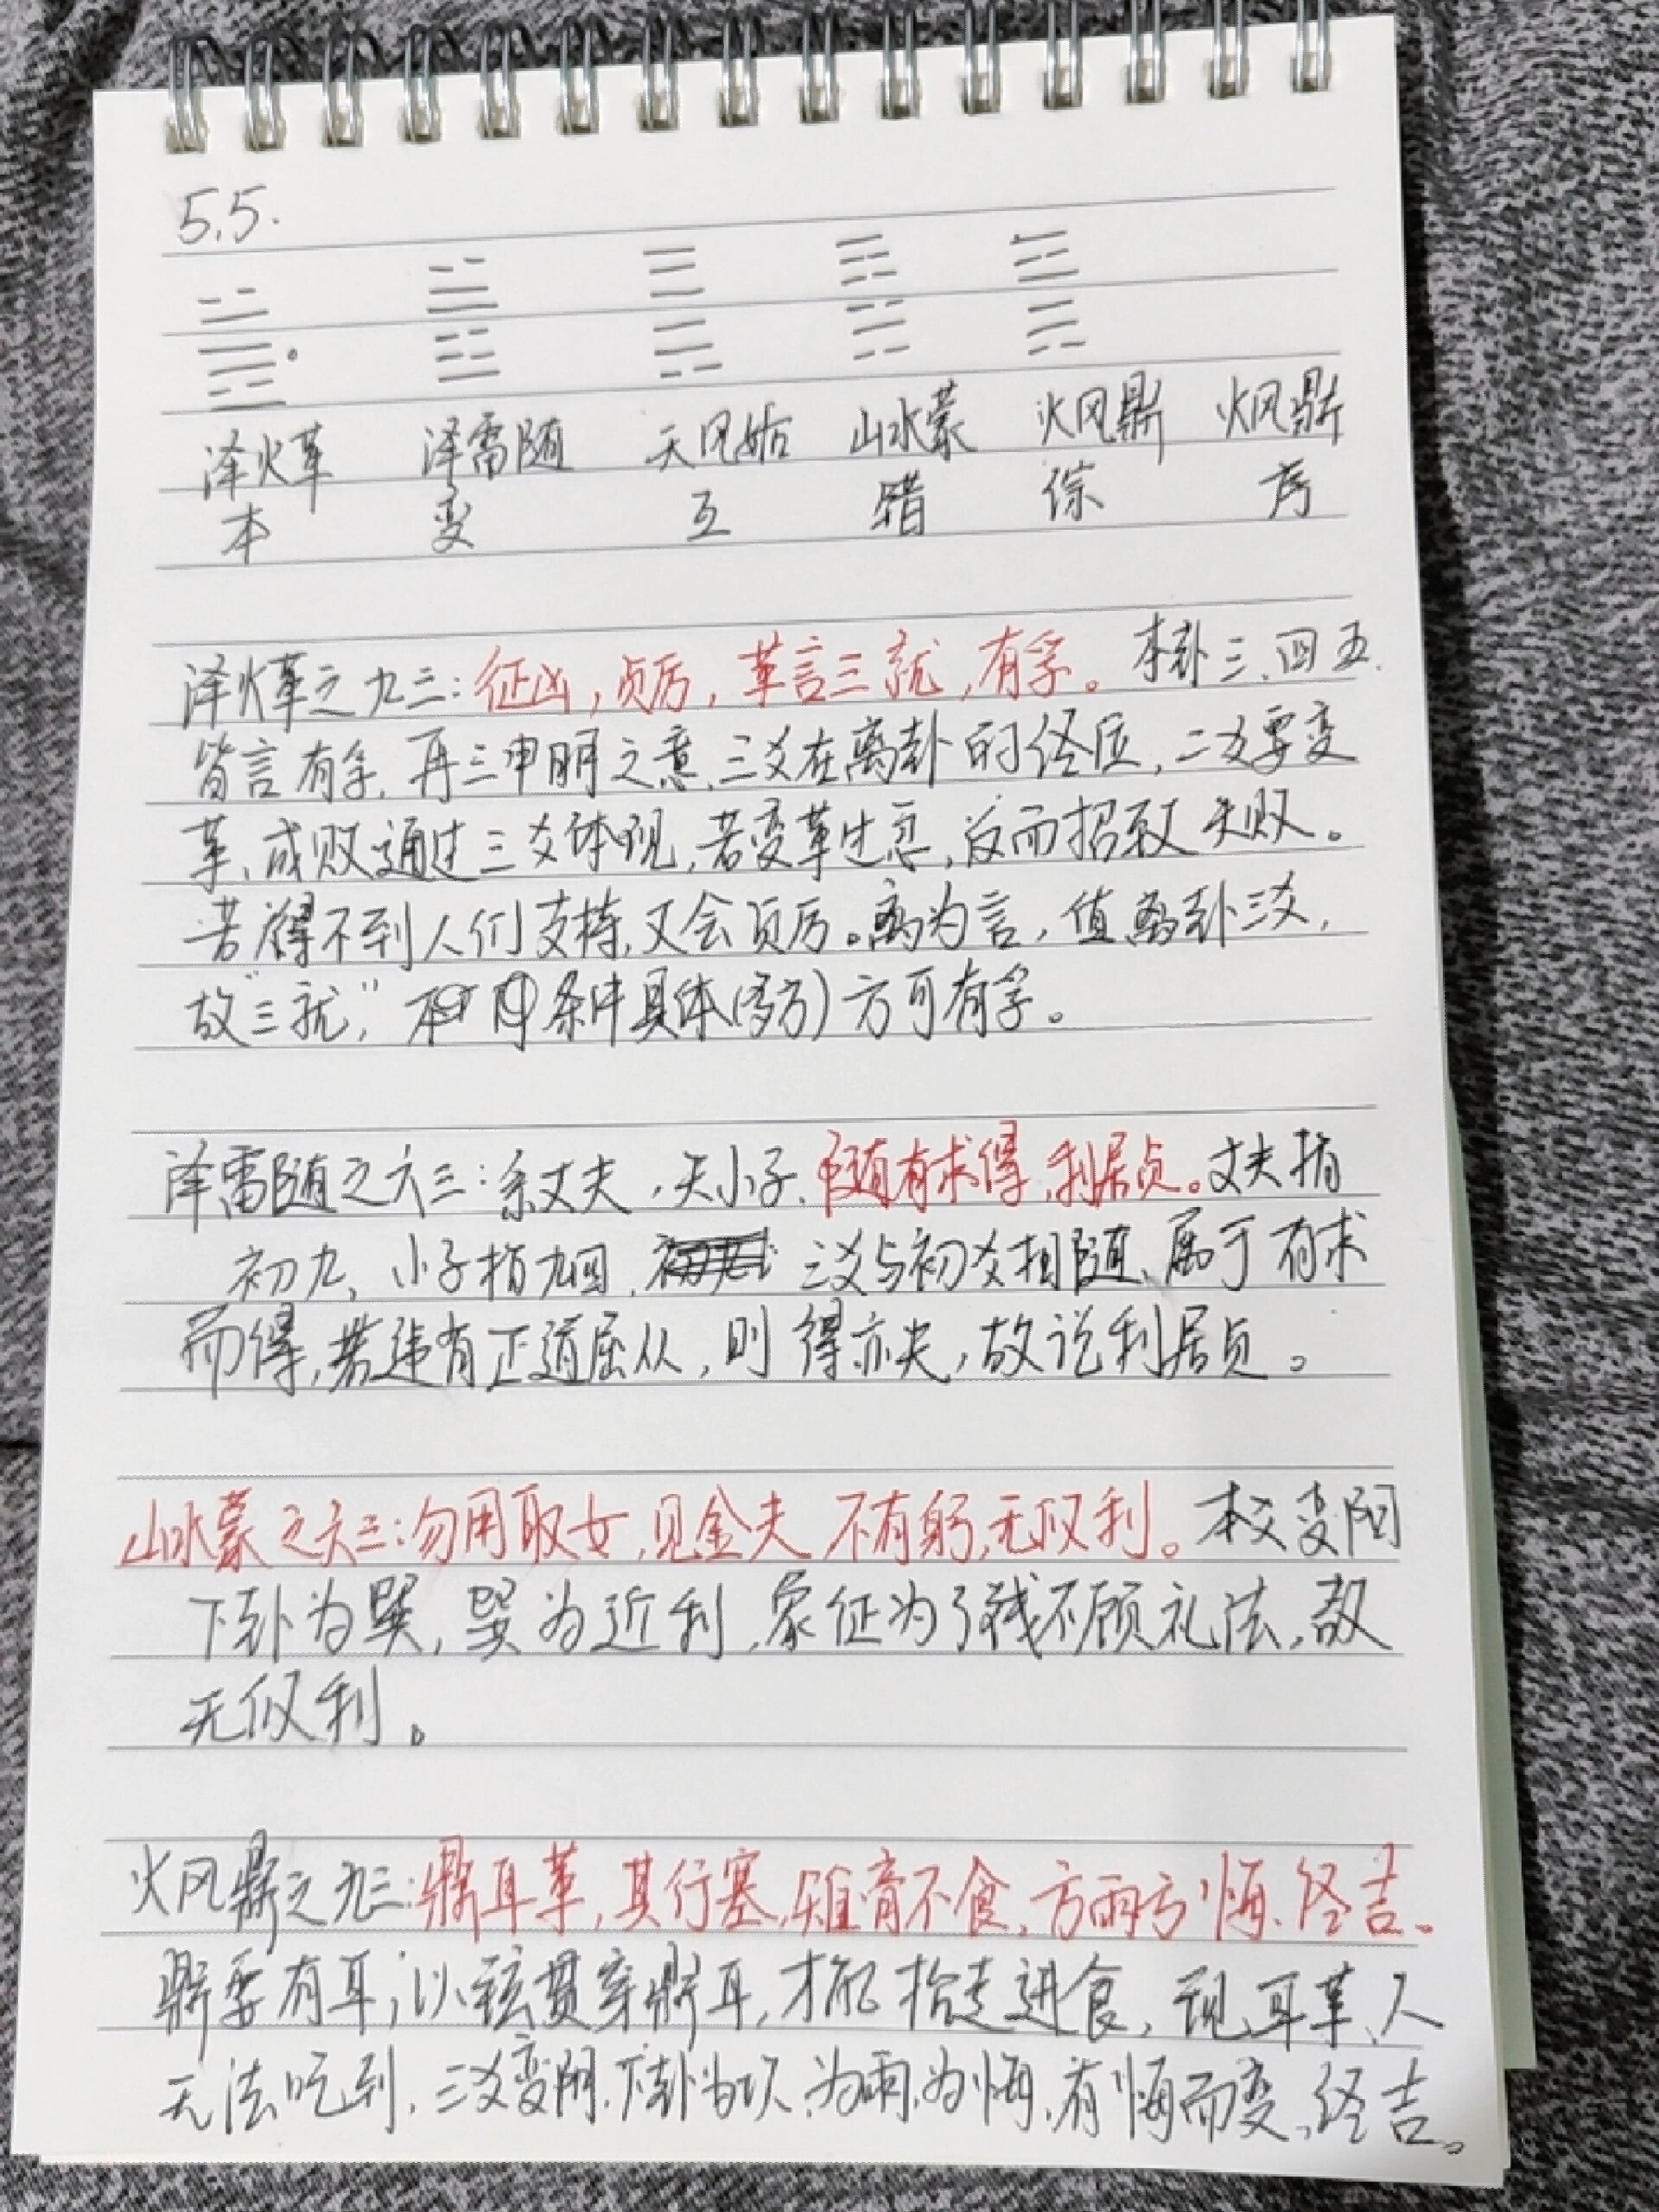 5.5.
泽火革 泽雷随 天风姤 山水蒙 火风鼎 火风鼎
本 变 互 错 综 序
泽火革之九三:征凶,贞厉,革言三就,有孚。本卦三、四五.
皆言有孚,再三申明之意,三爻在离卦的终位,二爻要变
革,成败通过三爻体现,若变革生忌,反而招致失败。
若得不到人们支持,又会贞厉。离为言,值离卦三爻,
故"三就," 条件具体(多方)方可有孚。
泽雷随之六三:系丈夫,失小子,随有求得,利居贞。丈夫指
初九,小子指九四, 三爻与初爻相随,属于有求
而得,若违背正道屈从,则得亦失,故说利居贞。
山水蒙之六三:勿用取女,见金夫 不有躬,无攸利。本爻变阳
下卦为巽,巽为近利,象征为了钱不顾礼法,故
无攸利。
火风鼎之九三:鼎耳革,其行塞,雉膏不食,方雨亏悔,终吉。
鼎要有耳,以铉贯穿鼎耳,才能抬走进食,现耳革,人
无法吃到,三爻变阴,下卦为坎,为雨,为悔,有悔而变,终吉。